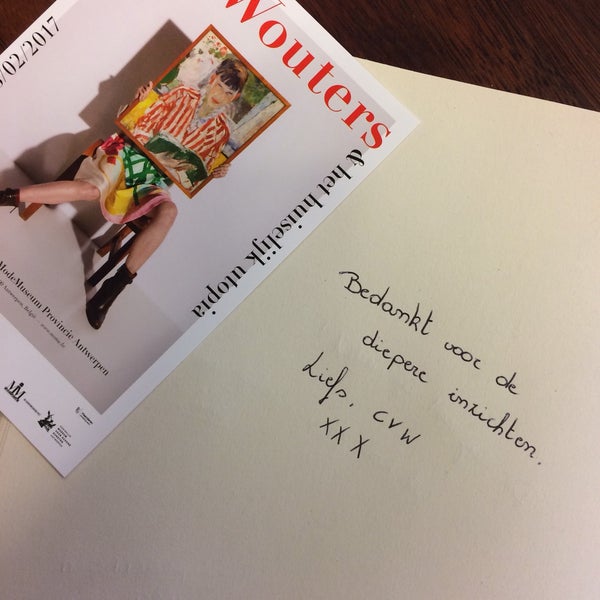 /02/2017
Wouters
& het huiselijk utopia
ModeMuseum Provincie Antwerpen
Bedankt voor de
diepere inzichten.
Liefs, CVW
XXX